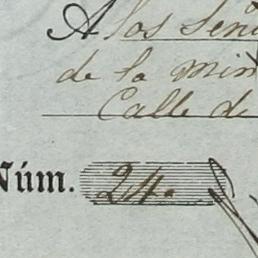 A los Seño
de la min
Calle de
Núm. 24.